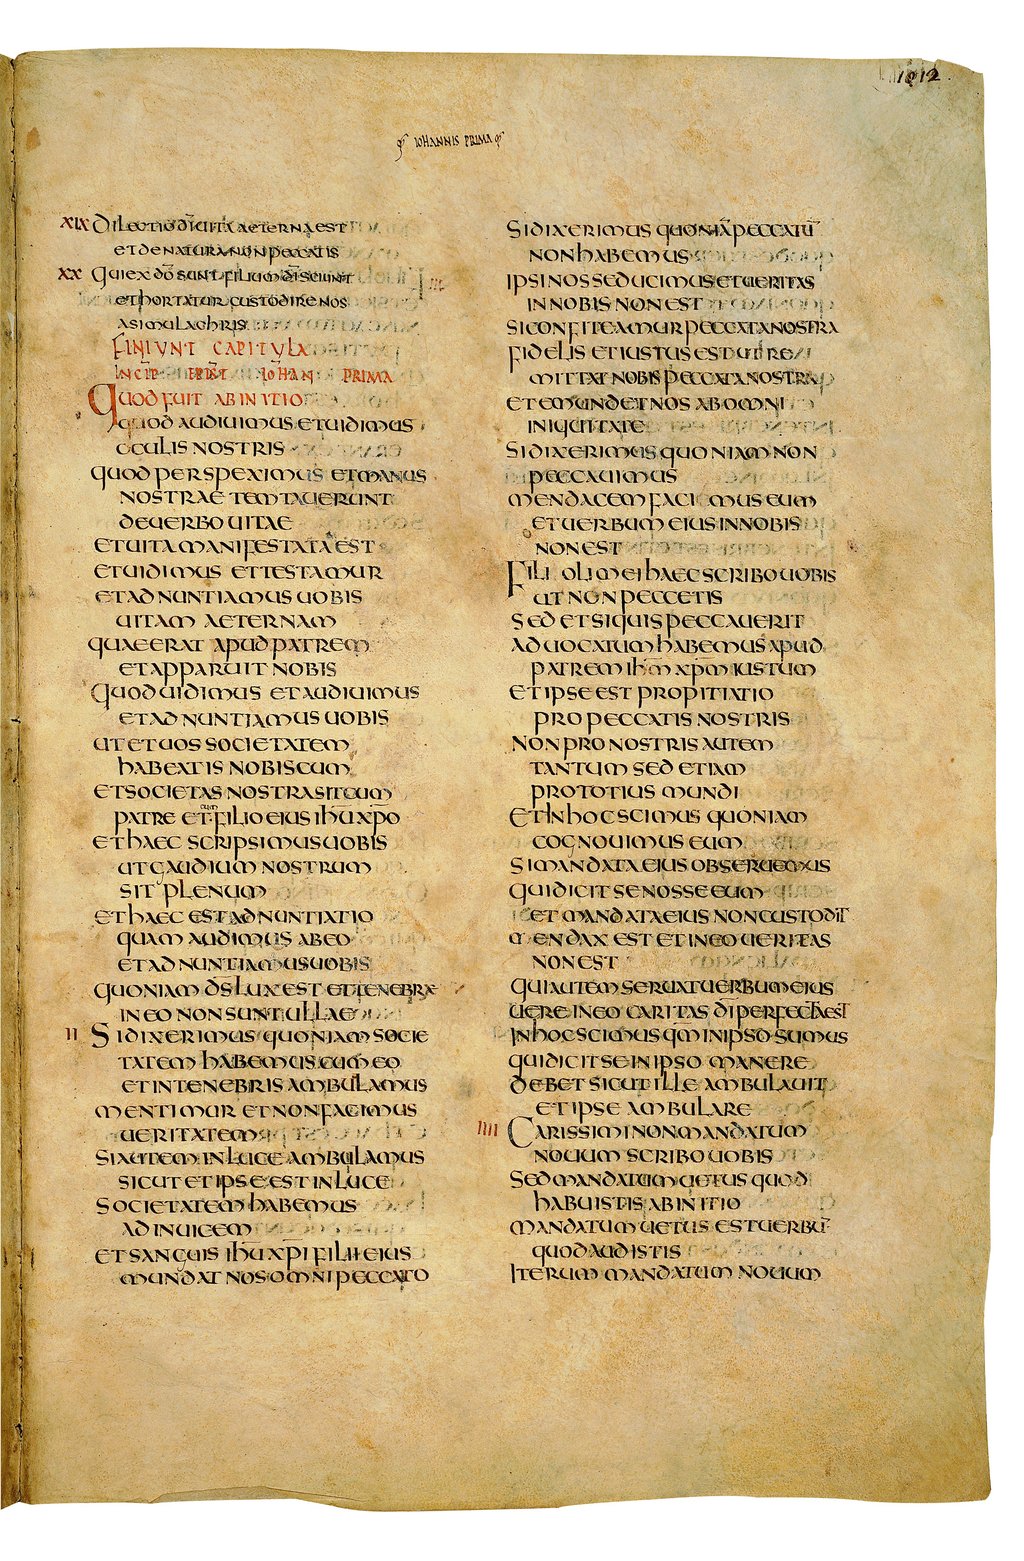 1012
IOHANNIS PRIMA
XIX DILECTIO DĪ UITA AETERNA EST
ET DE NATURA NON PECCATIS
XX QUI EX DŌ SUNT FILIUM DĪ SCIUNT
ET HORTATUR CUSTODIRE NOS
A SIMULACHRIS
FINIUNT CAPITULA
INCIP EPIST IOHAN PRIMA
QUOD FUIT AB INITIO
QUOD AUDIUIMUS ET UIDIMUS
OCULIS NOSTRIS
QUOD PERSPEXIMUS ET MANUS
NOSTRAE TEMTAUERUNT
DE UERBO UITAE
ET UITA MANIFESTATA EST
ET UIDIMUS ET TESTAMUR
ET ADNUNTIAMUS UOBIS
UITAM AETERNAM
QUAE ERAT APUD PATREM
ET APPARUIT NOBIS
QUOD UIDIMUS ET AUDIUIMUS
ET ADNUNTIAMUS UOBIS
UT ET UOS SOCIETATEM
HABEATIS NOBISCUM
ET SOCIETAS NOSTRA SIT CUM
PATRE ET CUM FILIO EIUS IHŪ XPŌ
ET HAEC SCRIPSIMUS UOBIS
UT GAUDIUM NOSTRUM
SIT PLENUM
ET HAEC EST ADNUNTIATIO
QUAM AUDIMUS AB EO
ET ADNUNTIAMUS UOBIS
QUONIAM DS̄ LUX EST ET TENEBRAE
IN EO NON SUNT ULLAE
II SI DIXERIMUS QUONIAM SOCIE
TATEM HABEMUS CUM EO
ET IN TENEBRIS AMBULAMUS
MENTIMUR ET NON FACIMUS
UERITATEM
SI AUTEM IN LUCE AMBULAMUS
SICUT ET IPSE EST IN LUCE
SOCIETATEM HABEMUS
AD INUICEM
ET SANGUIS IHŪ XPĪ FILII EIUS
MUNDAT NOS OMNI PECCATO
SI DIXERIMUS QUONIĀ PECCATŪ
NON HABEMUS
IPSI NOS SEDUCIMUS ET UERITAS
IN NOBIS NON EST
SI CONFITEAMUR PECCATA NOSTRA
FIDELIS ET IUSTUS EST UT RE
MITTAT NOBIS PECCATA NOSTRA
ET EMUNDET NOS AB OMNI
INIQUITATE
SI DIXERIMUS QUONIAM NON
PECCAUIMUS
MENDACEM FACIMUS EUM
ET UERBUM EIUS IN NOBIS
NON EST
FILIOLI MEI HAEC SCRIBO UOBIS
UT NON PECCETIS
SED ET SI QUIS PECCAUERIT
ADUOCATUM HABEMUS APUD
PATREM IHM̄ XPM̄ IUSTUM
ET IPSE EST PROPITIATIO
PRO PECCATIS NOSTRIS
NON PRO NOSTRIS AUTEM
TANTUM SED ETIAM
PRO TOTIUS MUNDI
ET IN HOC SCIMUS QUONIAM
COGNOUIMUS EUM
SI MANDATA EIUS OBSERUEMUS
QUI DICIT SE NOSSE EUM
ET MANDATA EIUS NON CUSTODIT
MENDAX EST ET IN EO UERITAS
NON EST
QUI AUTEM SERUAT UERBUM EIUS
UERE IN EO CARITAS DĪ PERFECTA EST
IN HOC SCIMUS QM̄ IN IPSO SUMUS
QUI DICIT SE IN IPSO MANERE
DEBET SICUT ILLE AMBULAUIT
ET IPSE AMBULARE
IIII CARISSIMI NON MANDATUM
NOUUM SCRIBO UOBIS
SED MANDATUM UETUS QUOD
HABUISTIS AB INITIO
MANDATUM UETUS EST UERBŪ
QUOD AUDISTIS
ITERUM MANDATUM NOUUM